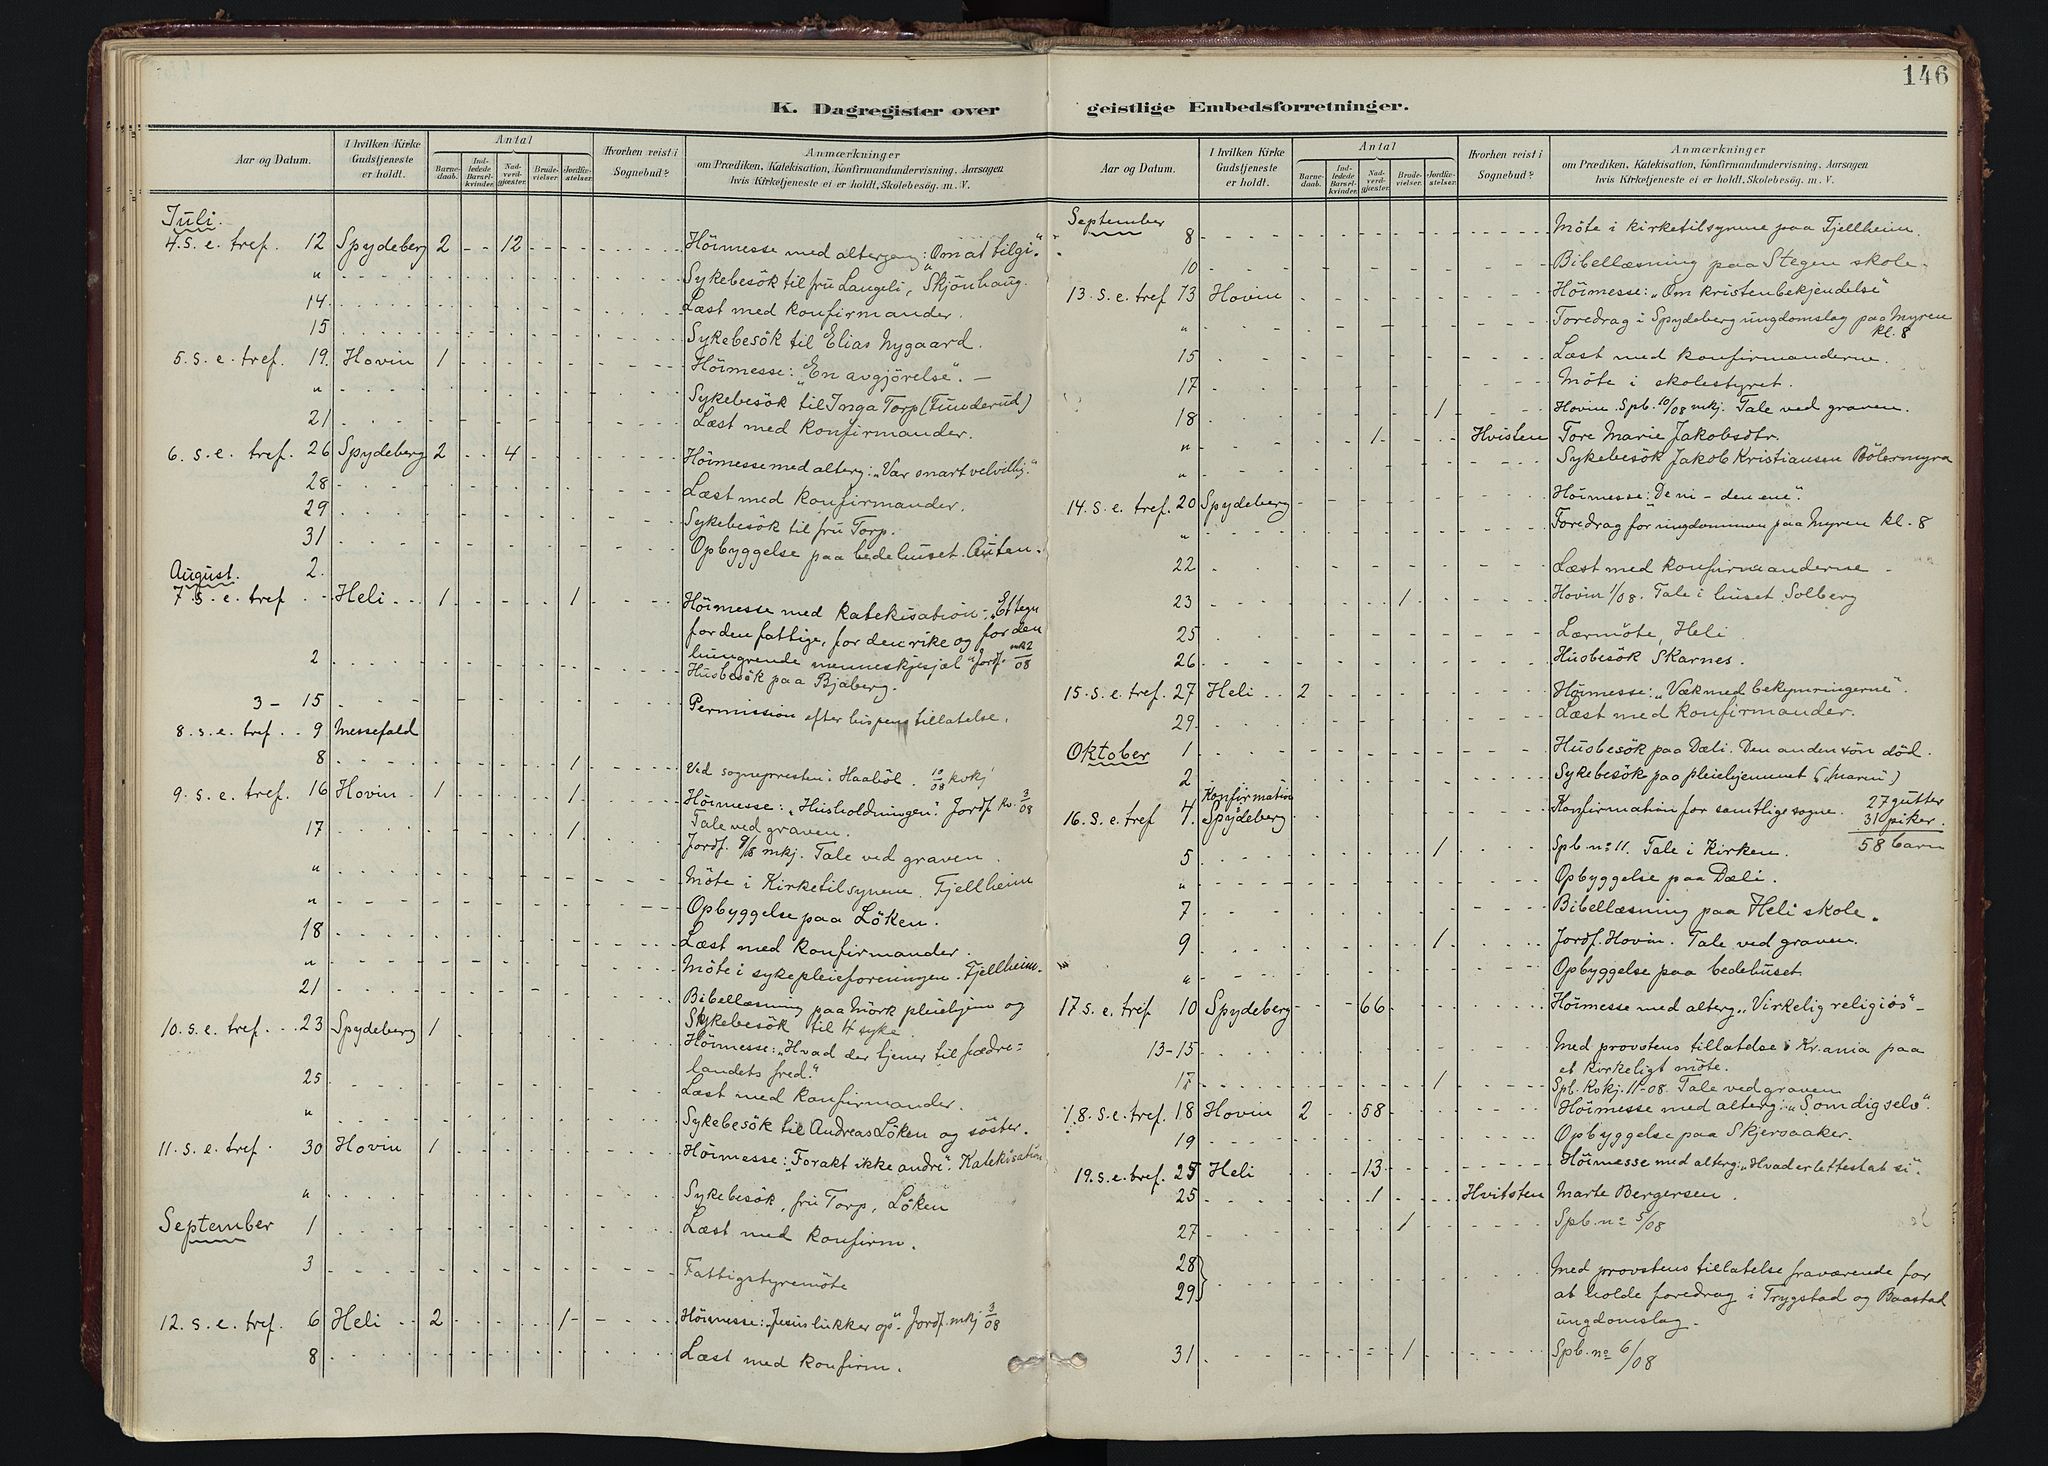 146
K. Dagregister over
Aar og Datum. I hvilken Kirke Gudstjeneste er holdt. Antal Barnedaab. Indledede Barselkvinder. Nadverdgjester. Brudevielser. Jordfæstelser. Hvorhen reist i Sognebud? Anmærkninger om Prædiken, Katekisation, Konfirmandundervisning, Aarsagen hvis Kirketjeneste ei er holdt, Skolebesøg. m. V.
Juli.
4. s. e. tref. 12 Spydeberg 2 12 Höimesse med altergang: "Om at tilgi."
" Sykebesök til fru Langeli, Skjönhaug.
14 Læst med konfirmander.
15 Sykebesök til Elias Nygaard.
5. s. e. tref. 19. Hovin 1 Höimesse: "En avgjörelse". –
" Sykebesök til Inga Torp (Funderud)
21 Læst med konfirmander.
6. s. e. tref. 26 Spydeberg 2 4 Höimesse med alterg: "Vær snart velvillig."
28 Læst med konfirmander.
29 Sykebesök til fru Torp.
31 Opbyggelse paa bedehuset. Auten.
August. 2.
7. s. e. tref Heli 1 1 Höimesse med katekisation: "Et tegn
for den fattige, for den rike og for den
hungrende menneskjesjæl" Jordf. mk 2/08
2 Husbesök paa Bjaberg.
3 – 15 Permission efter bispens tillatelse.
8. s. e. tref. 9 Messefald
8 1 Ved sognepresten i Haaböl. 10/08 kvkj
9. s. e. tref. 16 Hovin 1 1 Höimesse: "Husholdningen". Jordf kv. 3/08
Tale ved graven.
17 1 Jordf. 9/08 mkj. Tale ved graven.
" Möte i Kirketilsynene Fjellheim
" Opbyggelse paa Löken.
18 Læst med konfirmander.
" Möte i sykepleieforeningen. Fjellheim.
21 Bibellæsning paa Mörk pleiehjem og
Sykebesök til 4 syke
10. s. e. tref. 23 Spydeberg 1 Höimesse: "Hvad der tjener til fædre-
landets fred."
25 Læst med konfirmander.
" Sykebesök til Andreas Löken og söster.
11. s. e. tref. 30 Hovin 1 Höimesse: "Forakt ikke andre". Katekisation
" Sykebesök, fru Torp, Löken
September 1 Læst med konfirm.
3 Fattigstyremöte
12. s. e. tref. 6 Heli 2 1 Höimesse: "Jesus lukker op". Jordf. mkj 3/08
8 Læst med konfirm.
geistlige Embedsforretninger.
Aar og Datum. I hvilken Kirke Gudstjeneste er holdt. Antal Barnedaab. Indledede Barselkvinder. Nadverdgjester. Brudevielser. Jordfæstelser. Hvorhen reist i Sognebud? Anmærkninger om Prædiken, Katekisation, Konfirmandundervisning, Aarsagen hvis Kirketjeneste ei er holdt, Skolebesøg. m. V.
September
8 Möte i kirketilsynene paa Fjellheim.
10 Bibellæsning paa Stegen skole.
13. s. e. tref 13 Hovin Höimesse: "Om kristenbekjendelse"
" Foredrag i Spydeberg ungdomslag paa Myren
kl. 8
15 Læst med konfirmanderne.
17 Möte i skolestyret.
18 1 Hovin. Spb. 10/08 mkj. Tale ved graven.
" 1 Hvitsten Tore Marie Jakobsdtr.
" Sykebesök Jakob Kristiansen Bölermyra
14. s. e. tref. 20 Spydeberg Höimesse: De ni – den ene".
" Foredrag for ungdommen paa Myren kl. 8
22 Læst med konfirmanderne
23 1 Hovin 1/08. Tale i huset Solberg
25 Lærmöte, Heli
26 Husbesök Skarnes.
15. s. e. tref. 27 Heli 2 Höimesse: "Væk med bekymringerne".
29 Læst med konfirmander.
Oktober 1 Husbesök paa Dæli. Den anden sön död.
2 Sykebesök paa pleiehjemmet (Maren)
Konfirmation
16. s. e. tref 4. Spydeberg Konfirmation for samtlige sogne. 27 gutter
31 piker.
5 1 Spb. no 11. Tale i Kirken. 58 barn
" Opbyggelse paa Dæli.
7 Bibellæsning paa Heli skole.
9 1 Jordf. Hovin. Tale ved graven.
" Opbyggelse paa bedehuset.
17 s. e. tref 10 Spydeberg 66 Höimesse med alterg. "Virkelig religiös" –
13–15 Med provstens tillatelse i Kr.ania paa
et kirkeligt möte.
17 1 Spb. Kvkj. 11-08. Tale ved graven
18. s. e. tref. 18 Hovin 2 58 Höimesse med alterg: "Som dig selv".
19 Opbyggelse paa Skjersaaker.
19. s. e. tref. 25 Heli 13 Höimesse med alterg: "Hvad er lettest at si".
25 1 Hvitsten Marte Bergersen.
27 1 Spb. no 5/08
28
29 Med provstens tillatelse fraværende for
at holde foredrag i Trygstad og Baastad
ungdomslag.
31 1 Spb. no 6/08